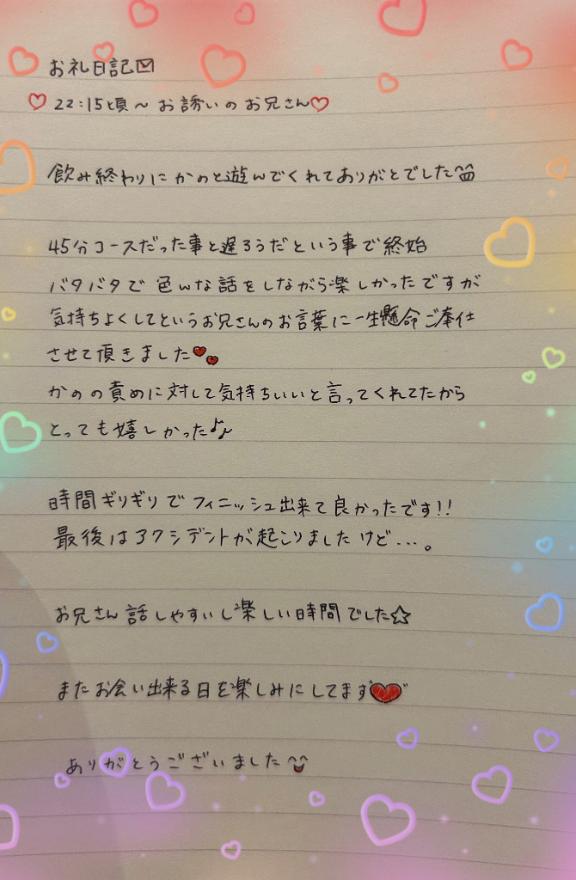 お礼日記✉
♡ 22:15頃〜お誘いのお兄さん♡
飲み終わりにかのと遊んでくれてありがとでした^^
45分コースだった事と遅ろうだという事で終始
バタバタで色んな話をしながら楽しかったですが
気持ちよくしてというお兄さんのお言葉に一生懸命ご奉仕
させて頂きました♥♥
かのの責めに対して気持ちいいと言ってくれてたから
とっても嬉しかった♪♪
時間ギリギリでフィニッシュ出来て良かったです!!
最後はアクシデントが起こりましたけど...。
お兄さん話しやすいし楽しい時間でした☆
またお会い出来る日を楽しみにしてます♥
ありがとうございました^^